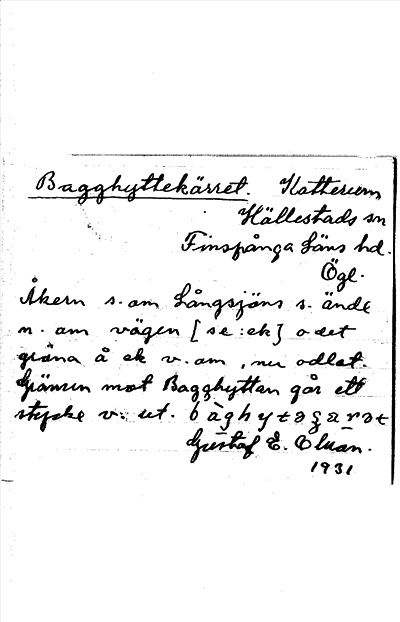 Bagghyttekärret. Katterum,
Hällestads sn
Finspånga läns hd.
Ögl.
Åkern s. om Långsjöns s. ände
n. om vägen [se: ek] o det
gröna å ek v. om, nu odlat.
Gränsen mot Bagghyttan går ett
stycke v. ut.
Gustaf E.
1931